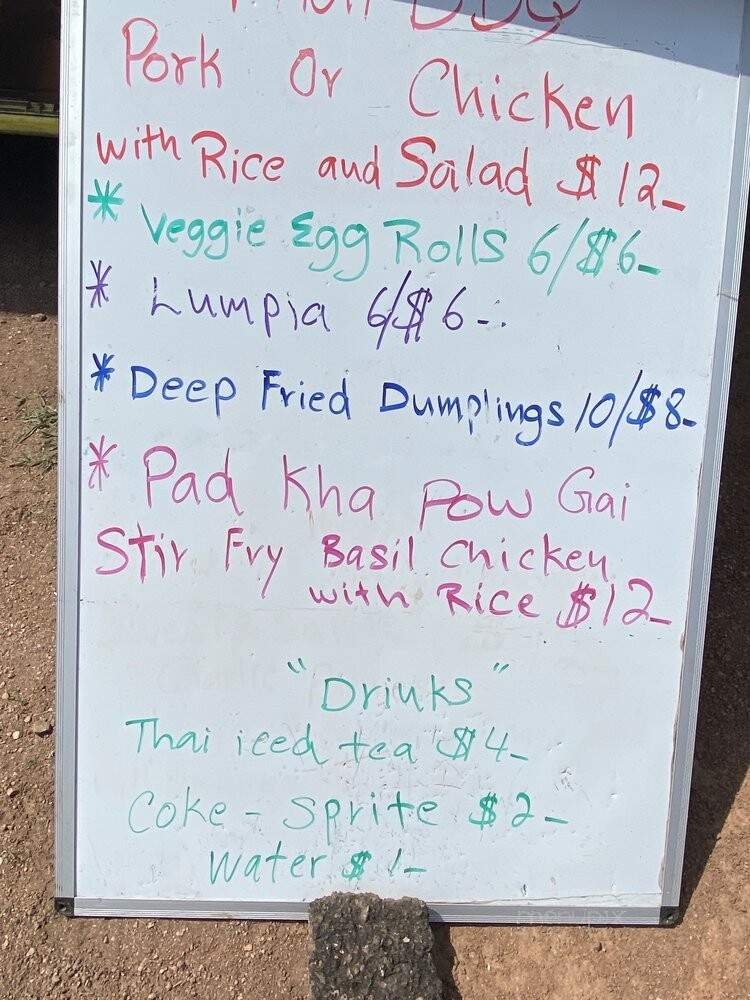 BBQ
Pork Or Chicken
with Rice and Salad $12-
* Veggie Egg Rolls 6/$6-
* Lumpia 6/$6-
* Deep Fried Dumplings 10/$8-
* Pad Kha Pow Gai
Stir Fry Basil Chicken
with Rice $12-
"Drinks"
Thai iced tea $4-
Coke - Sprite $2-
Water $1-
menupix